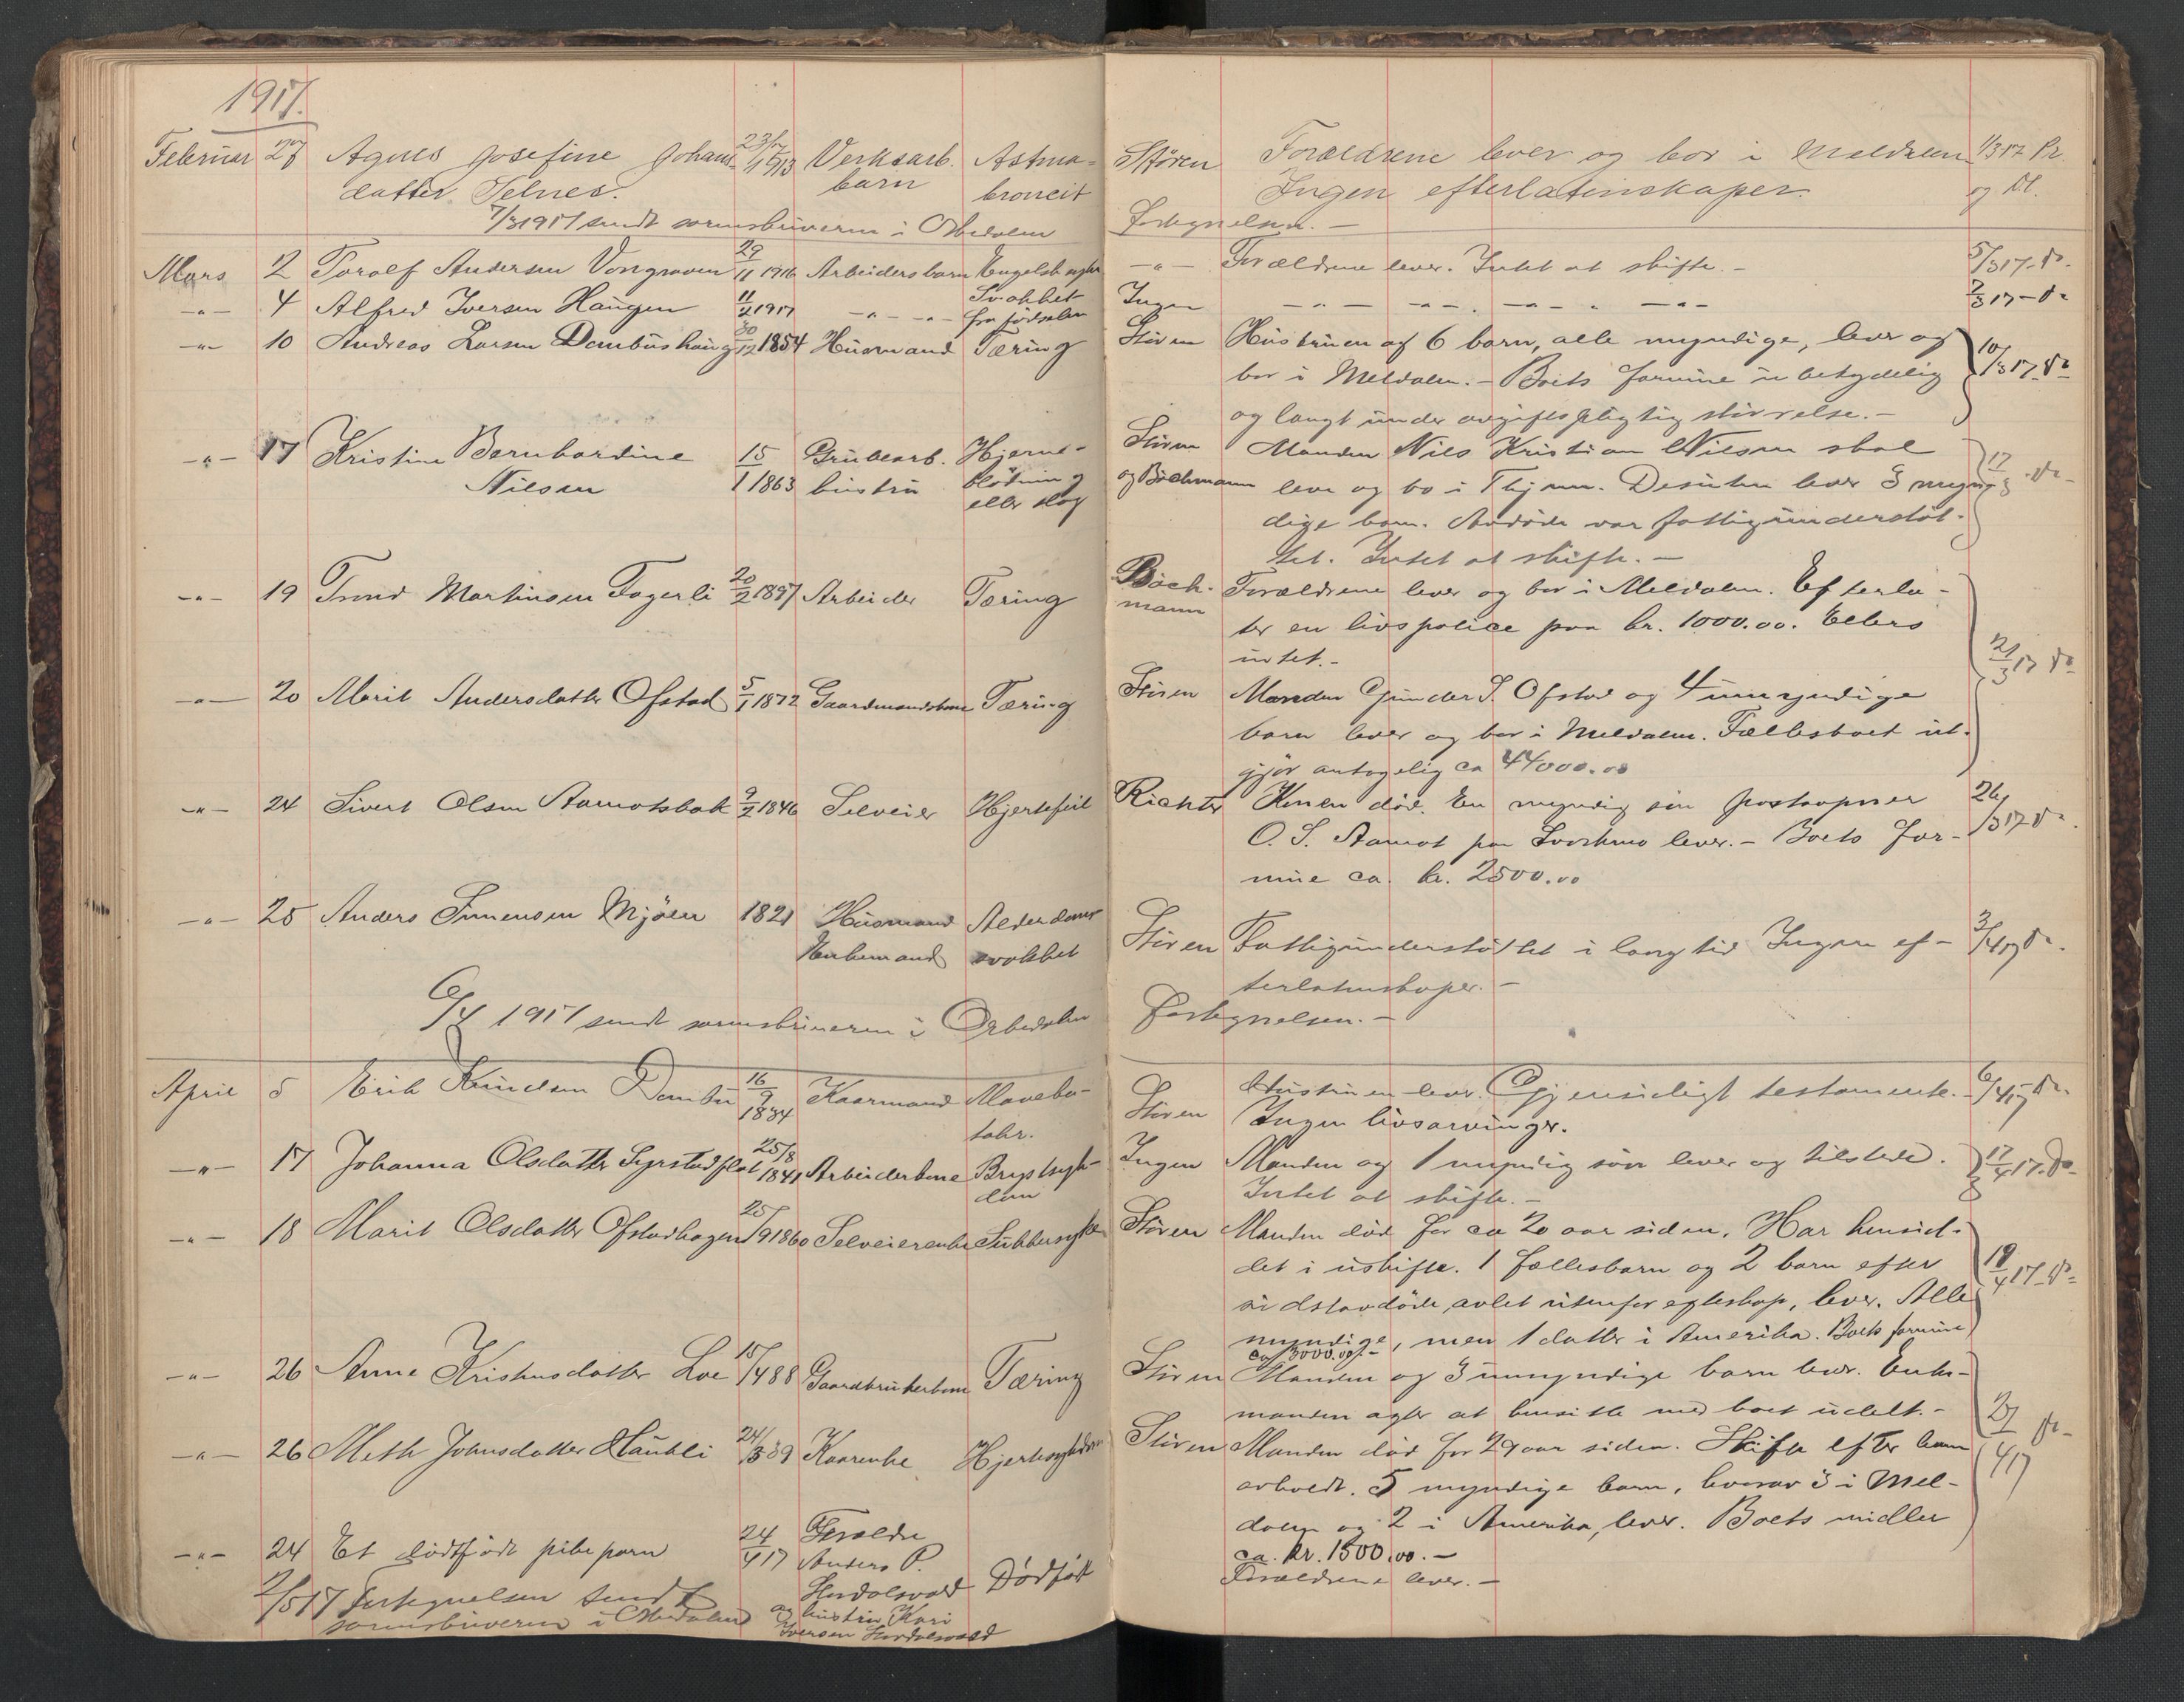 1917.
Februar 27 Agnes Josefine Johans- 23/11 1913 Verksarb. Astma- Støren Forældrene lever og bor i Meldalen 1/3 17 Pr.
datter Selnes. barn broncit Ingen efterlatenskaper. og Dl.
7/3 1917 sendt sorenskriveren i Orkedalen Fortegnelsen. —
Mars 2 Toralf Andersen Vongraven 29/11 1916 Arbeidersbarn Engelsk syke —"— Forældrene lever. Intet at skifte. — 5/3 17 - Do.
—"— 4 Alfred Iversen Haugen 11/2 1917 —"— —"— Svakhet Ingen —"— —"— . —"— " —"— 7/3 17 - Do
fra fødselen
—"— 10 Andreas Larsen Dombushaug 30/12 1854 Husmand Tæring Støren Hustruen og 6 barn, alle myndige, lever og 10/3 17 - Do
bor i Meldalen. — Boets formue ubetydelig
og langt under avgiftspligtig størrelse. —
—"— 17 Kristine Bernhardine 15/1 1863 Grubearb. Hjerne- Støren Manden Nils Kristian Nilsen skal 17/3 - Do -
Nilsen hustru blødning og Böckmann leve og bo i Thjem. Desuten lever 3 myn-
eller slag dige barn. Avdøde var fattigunderstøt-
tet. Intet at skifte. —
—"— 19 Trond Martinsen Fagerli 20/2 1897 Arbeider Tæring Böck- Forældrene lever og bor i Meldalen. Efterla-
mann ter en livspolice paa kr. 1000.00. Ellers
intet. — 21/3 17 Do
—"— 20 Marit Andersdatter Ofstad 5/1 1872 Gaardmandskone Tæring Støren Manden Gunder S. Ofstad og 4 umyndige
barn lever og bor i Meldalen. Fællesboet ut-
gjør antagelig ca 44000.00
—"— 24 Sivert Olsen Aamotsbak 9/2 1846 Selveier Hjertefeil Richter Konen død. En myndig søn postaapner 26/3 17 Do.
O. S. Aamot paa Svorkmo lever. — Boets for-
mue ca. kr. 2500.00
—"— 25 Anders Simensen Mjøen 1821 Husmand Alderdoms- Støren Fattigunderstøttet i lang tid Ingen ef- 3/4 17 Do.
Enkemand svakhet terlatenskaper. —
6/4 1917 sendt sorenskriveren i Orkedalen Fortegnelsen. —
April 5 Erik Knudsen Dombu 16/9 1834 Kaarmand Maveka- Støren Hustruen lever. Gjensidigt testamente. — 6/4 17 Do
tahr. Ingen livsarvinger.
—"— 17 Johanna Olsdatter Syrstadflot 25/8 1841 Arbeiderkone Brystsyk- Ingen Manden og 1 myndig søn lever og tilstede. 17/4 17. Do -
dom Intet at skifte. —
—"— 18 Marit Olsdatter Ofstadhagen 25/9 1860 Selveierenke Sukkersyke Støren Manden død for ca 20 aar siden. Har hensid-
det i uskifte. 1 fællesbarn og 2 barn efter 18/4 17 - Do -
sidstavdøde, avlet utenfor egteskap, lever. Alle
myndige, men 1 datter i Amerika. Boets formue
ca 3000.00. —
—"— 26 Anne Kristensdatter Loe 15/4 88 Gaardbrukerkone Tæring Støren Manden og 3 umyndige barn lever. Enke-
manden agter at hensitte med boet udelt. —
—"— 26 Meth Johnsdatter Haukli 24/3 39 Kaarenke Hjertesykdom Støren Manden død for 29 aar siden. Skifte efter ham 27/4 17 Do -
avholdt. 5 myndige barn, hvorav 3 i Mel-
dalen og 2 i Amerika, lever. Boets midler
ca. kr. 1500.00. —
—"— 24 Et dødfødt pikebarn 24/4 17 Forældre Dødfødt Forældrene lever. —
Anders P.
Hordalsvold
og hustru Kari
Iversen Hordalsvold
2/5 17 Fortegnelsen sendt
sorenskriveren i Orkedalen